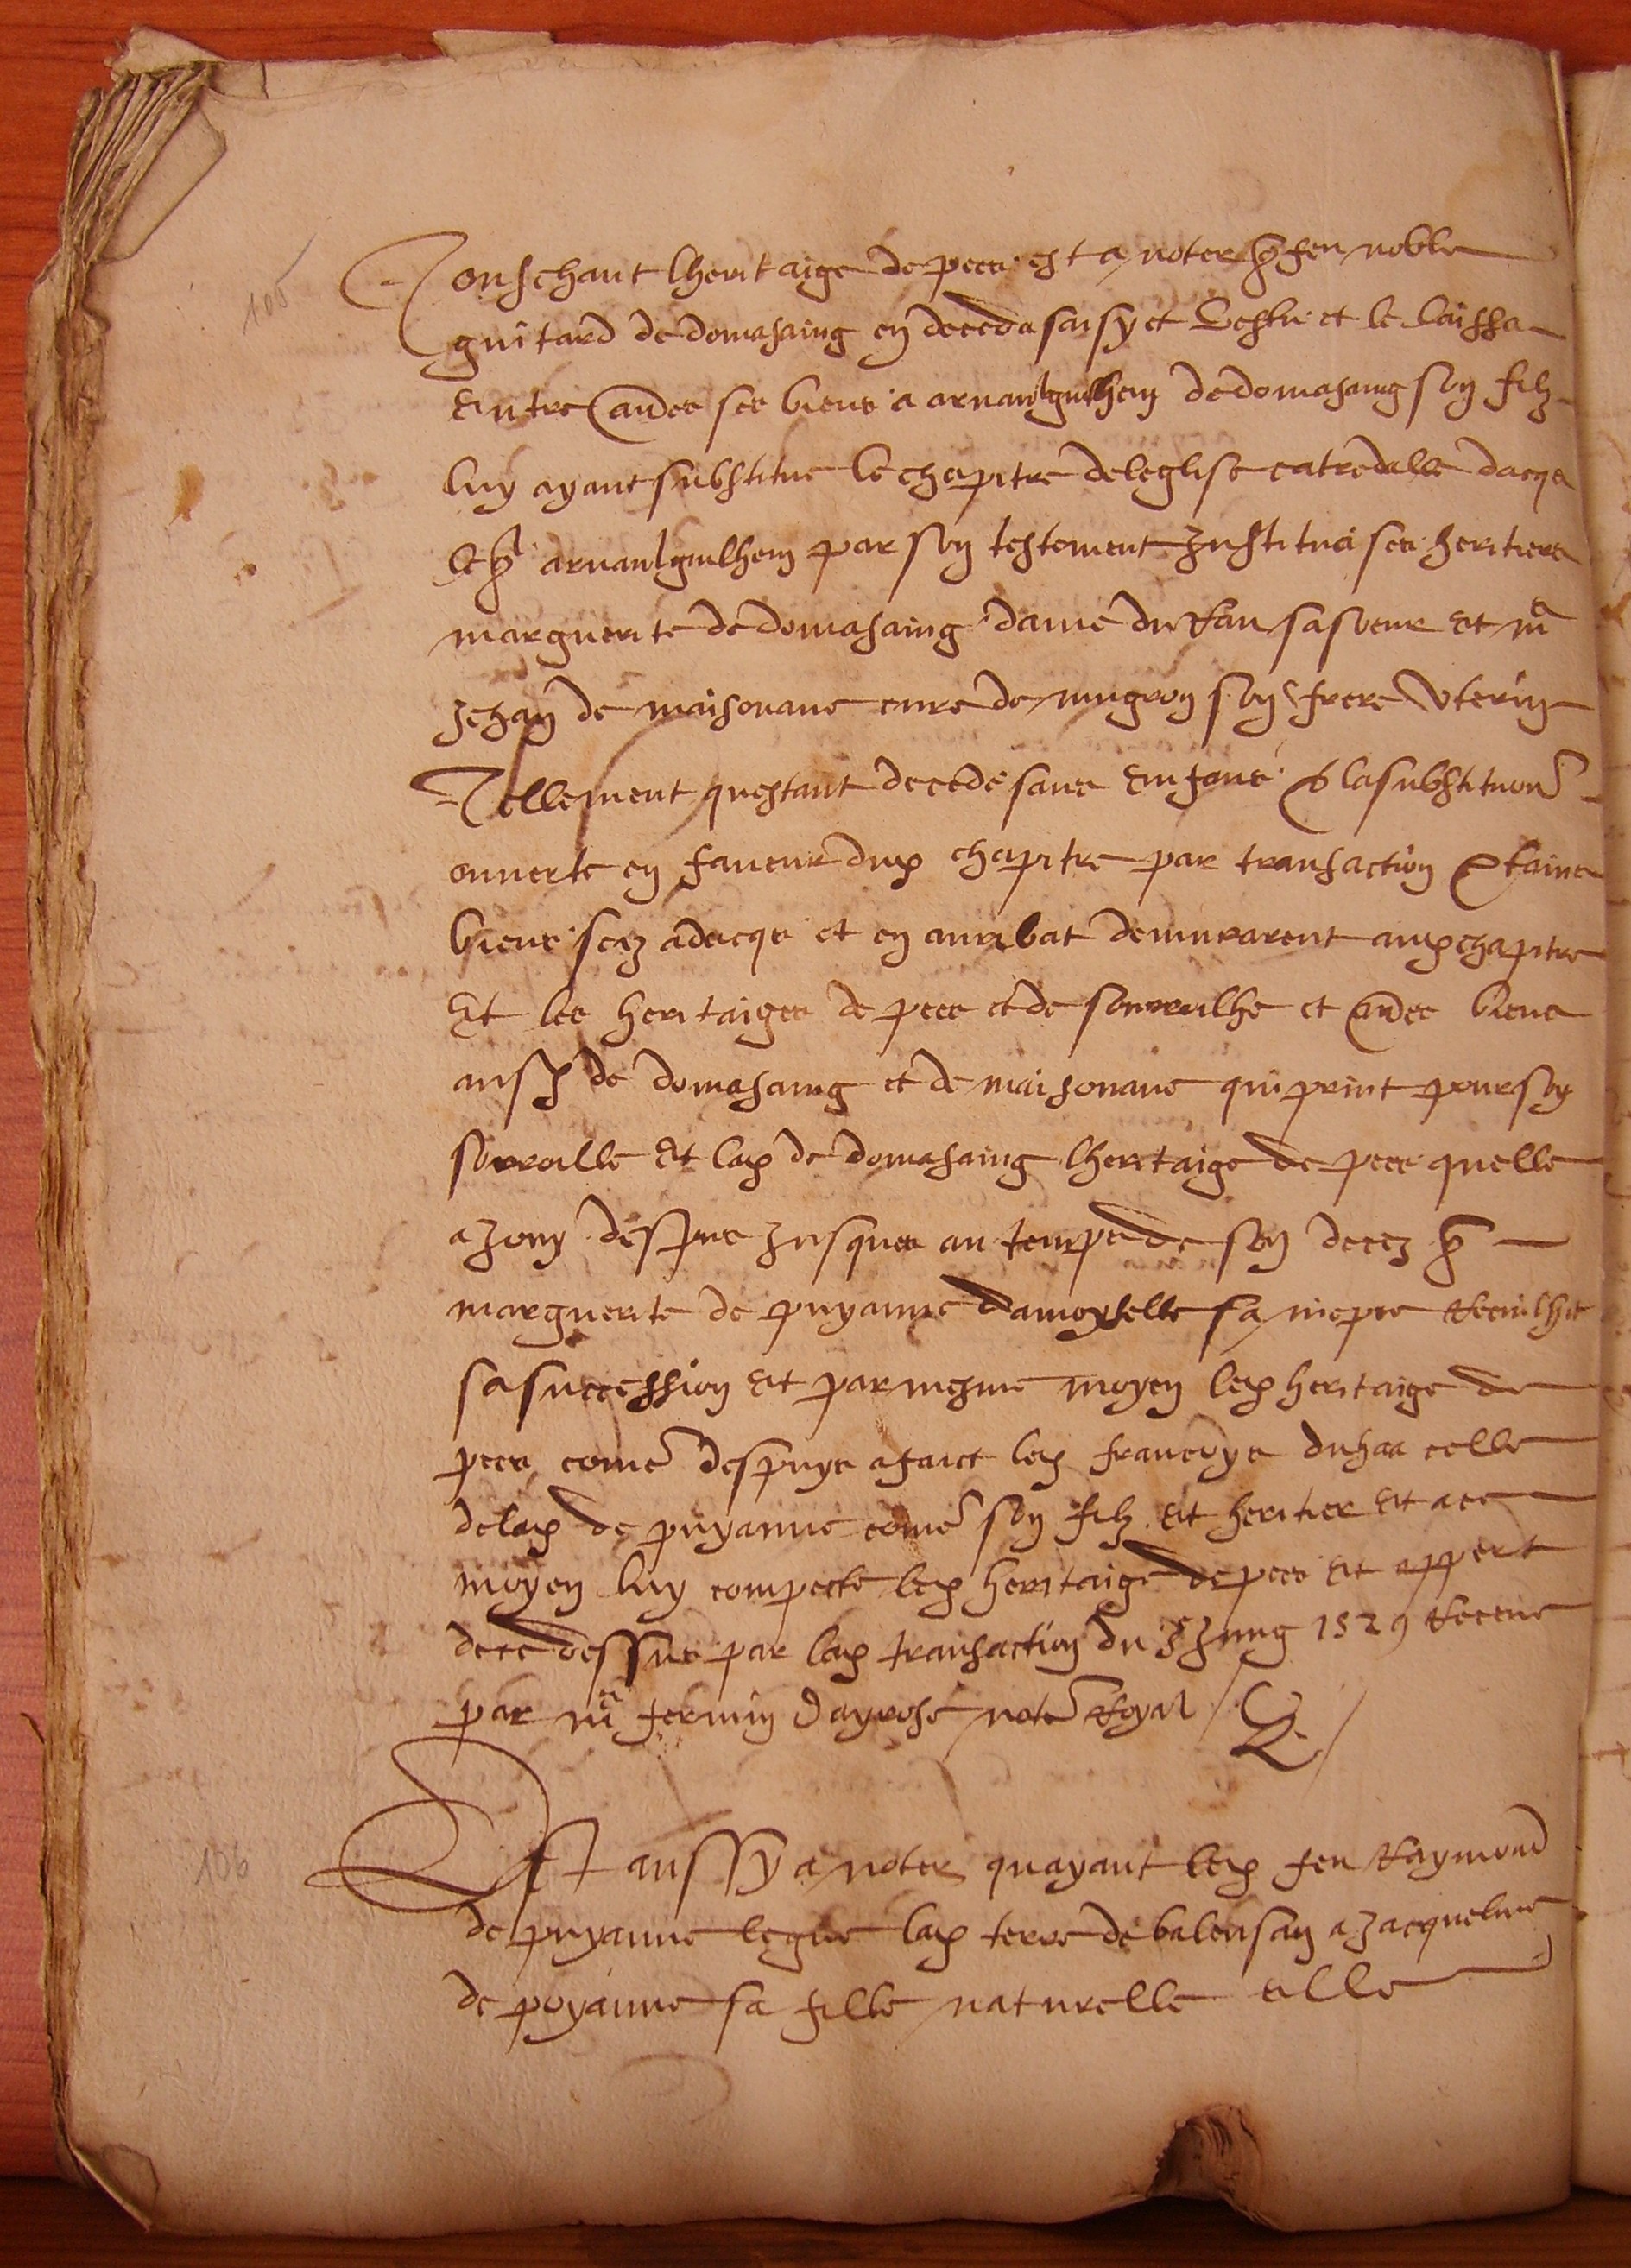 105
Touschant lheritaige de pees est a noter q̃ feu noble
guitard de domasaing en deceda saisy et vestu et le laissa
entre aũes ses biens a arnaulguilhem de domasaing son filz
luy ayant substitue le chapitre de leglise catredalle dacqs
arnaulguilhem par son testement Institua ses heritiers
marguerite de domasaing dame du Vau sa soeur et mͤ
Jehan de maisonave cure de mugron son frere uterin
Tellement questant decede sans enfans & la substituoñ
ouverte en faveur dud chapitre par transaction Ctains
biens seez a dacqs et en auribat demurarent aud chapitre
Et les heritaiges de pees et de sorreilhe et aũes biens
ausd de domasaing et de maisonave qui print pour soy
sorreille Et lad de domasaing lheritaige de pees quelle
a Jouy despuis Jusques au temps de son decez q̃
marguerite de puyanne damoyselle sa niepce Recuilhit
sa succession et par mesme moyen led heritaige de
pees come despuys a faict led francoys du haa celle
de lad de puyanne come son filz et heritier Et a ce
moyen luy compecte led heritaige de pees Et appert
de ce dessus par lad transaction du 3 Jung 1529 Receue
par mͤ fermin Dayrose noteͤ Royal
106
Est aussy a noter quayant led feu Raymond
de puyanne legue lad terre de balensan a Jacqueline
de poyanne sa fille naturelle elle